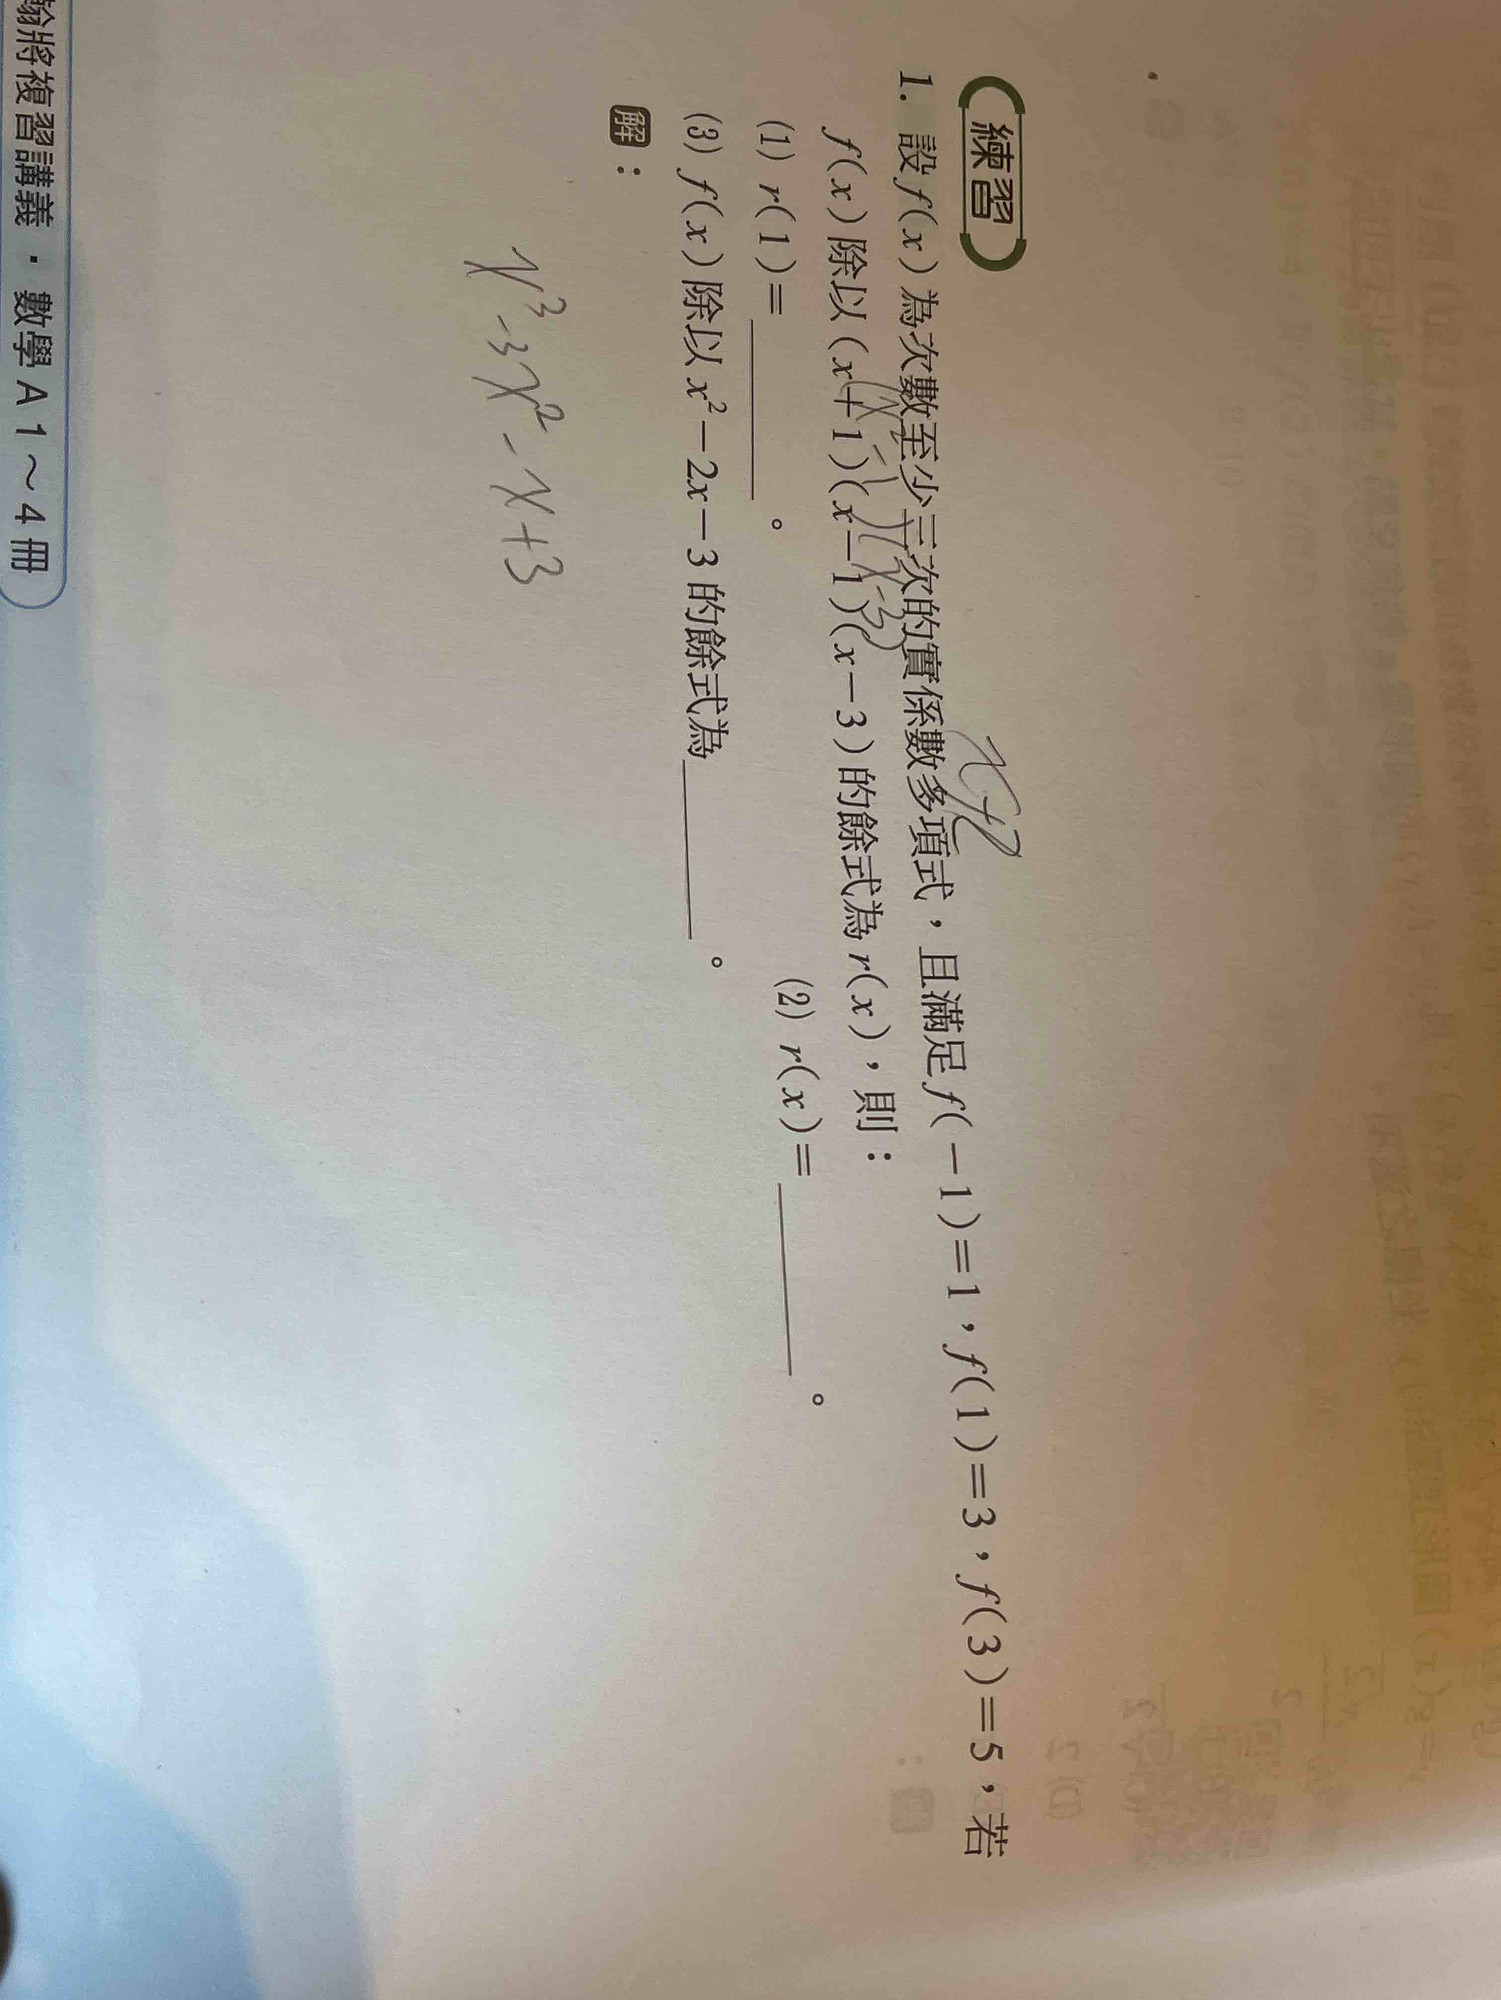 練習
1. 設 f(x) 為次數至少三次的實係數多項式，且滿足 f(-1)=1，f(1)=3，f(3)=5，若
f(x) 除以 (x+1)(x-1)(x-3) 的餘式為 r(x)，則：
(1) r(1)=______。 (2) r(x)=______。
(3) f(x) 除以 x²-2x-3 的餘式為______。
解：
x³-3x²-x+3
翰將複習講義．數學A 1～4冊